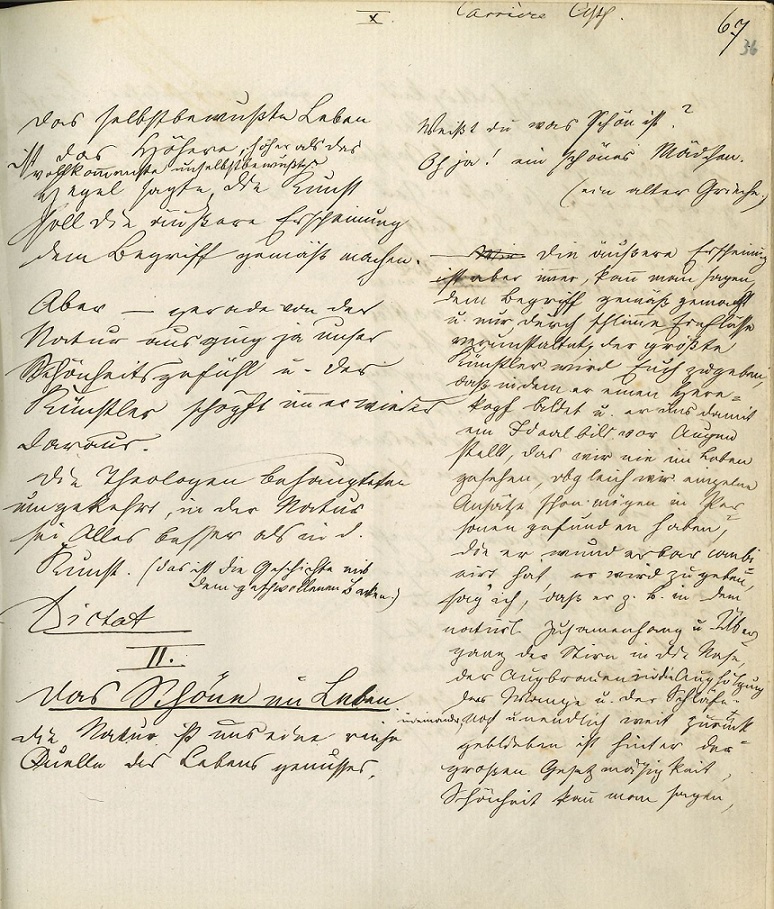 x
Carriere Ästh.
67
36
Das selbstbewußte Leben
ist das Höhere, höher als das
vollkommenste unselbstbewußte
Hegel sagte, die Kunst
soll die äußere Erscheinung
dem Begriff gemäß machen.
Aber — gerade von der
Natur ausging ja unser
Schönheitsgefühl u. der
Künstler schöpft immer wieder
daraus.
Die Theologen behaupteten
umgekehrt, in der Natur
sei Alles besser als in d.
Kunst. (das ist die Geschichte mit
dem geschwollenen Backen)
Dictat
II.
Das Schöne im Leben.
Die Natur ist uns eine reiche
Quelle des Lebensgenusses.
Weißt du was schön ist?
Oh ja! ein schönes Mädchen.
(ein alter Grieche)
— Wie die äußere Erscheinung
ist aber immer, kann man sagen,
dem Begriff gemäß gemacht
u. nur durch schlimme Einflüsse
verunstaltet, der größte
Künstler wird Euch zugeben,
daß indem er einen
kopf bildet u. er uns damit
ein Idealbild vor Augen
stellt, das wir nie im Leben
gesehen, obgleich wir einzelne
Ansätze schon mögen in Per
sonen gefunden haben,
die er wunderbar combi
nirt hat, er wird zugeben,
sag ich, daß er z. B. in dem
natürl. Zusammenhang u. Über
gang der Stirn in die Nase,
der Augbrauen in die Aughöhlung
der Wange u. der Schläfe
ineinander, noch unendlich weit zurück
geblieben ist hinter der
großen Gesetzmäßigkeit,
Schönheit kann man sagen,